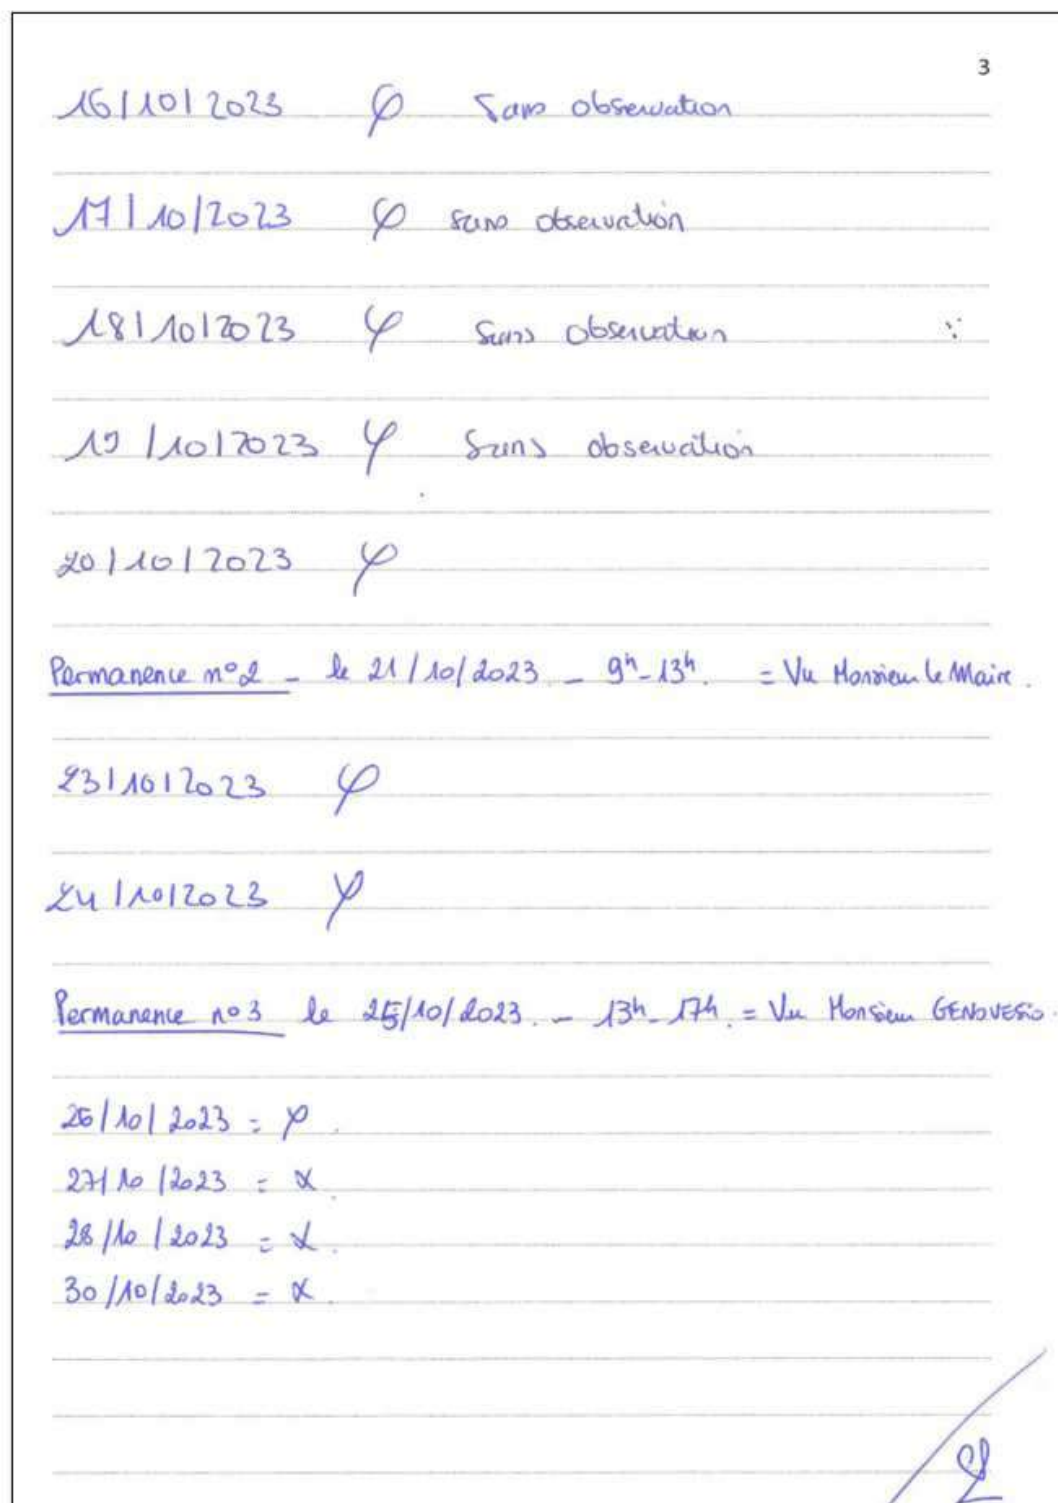 3
16/10/2023 φ Sans observation
17/10/2023 φ sans observation
18/10/2023 φ Sans observation
19/10/2023 φ Sans observation
20/10/2023 φ
Permanence n°2 - le 21/10/2023 - 9h-13h. = Vu Monsieur le Maire.
23/10/2023 φ
24/10/2023 φ
Permanence n°3 le 25/10/2023. - 13h-17h. = Vu Monsieur GENOVESIO.
26/10/2023 = φ.
27/10/2023 = α.
28/10/2023 = α.
30/10/2023 = α.